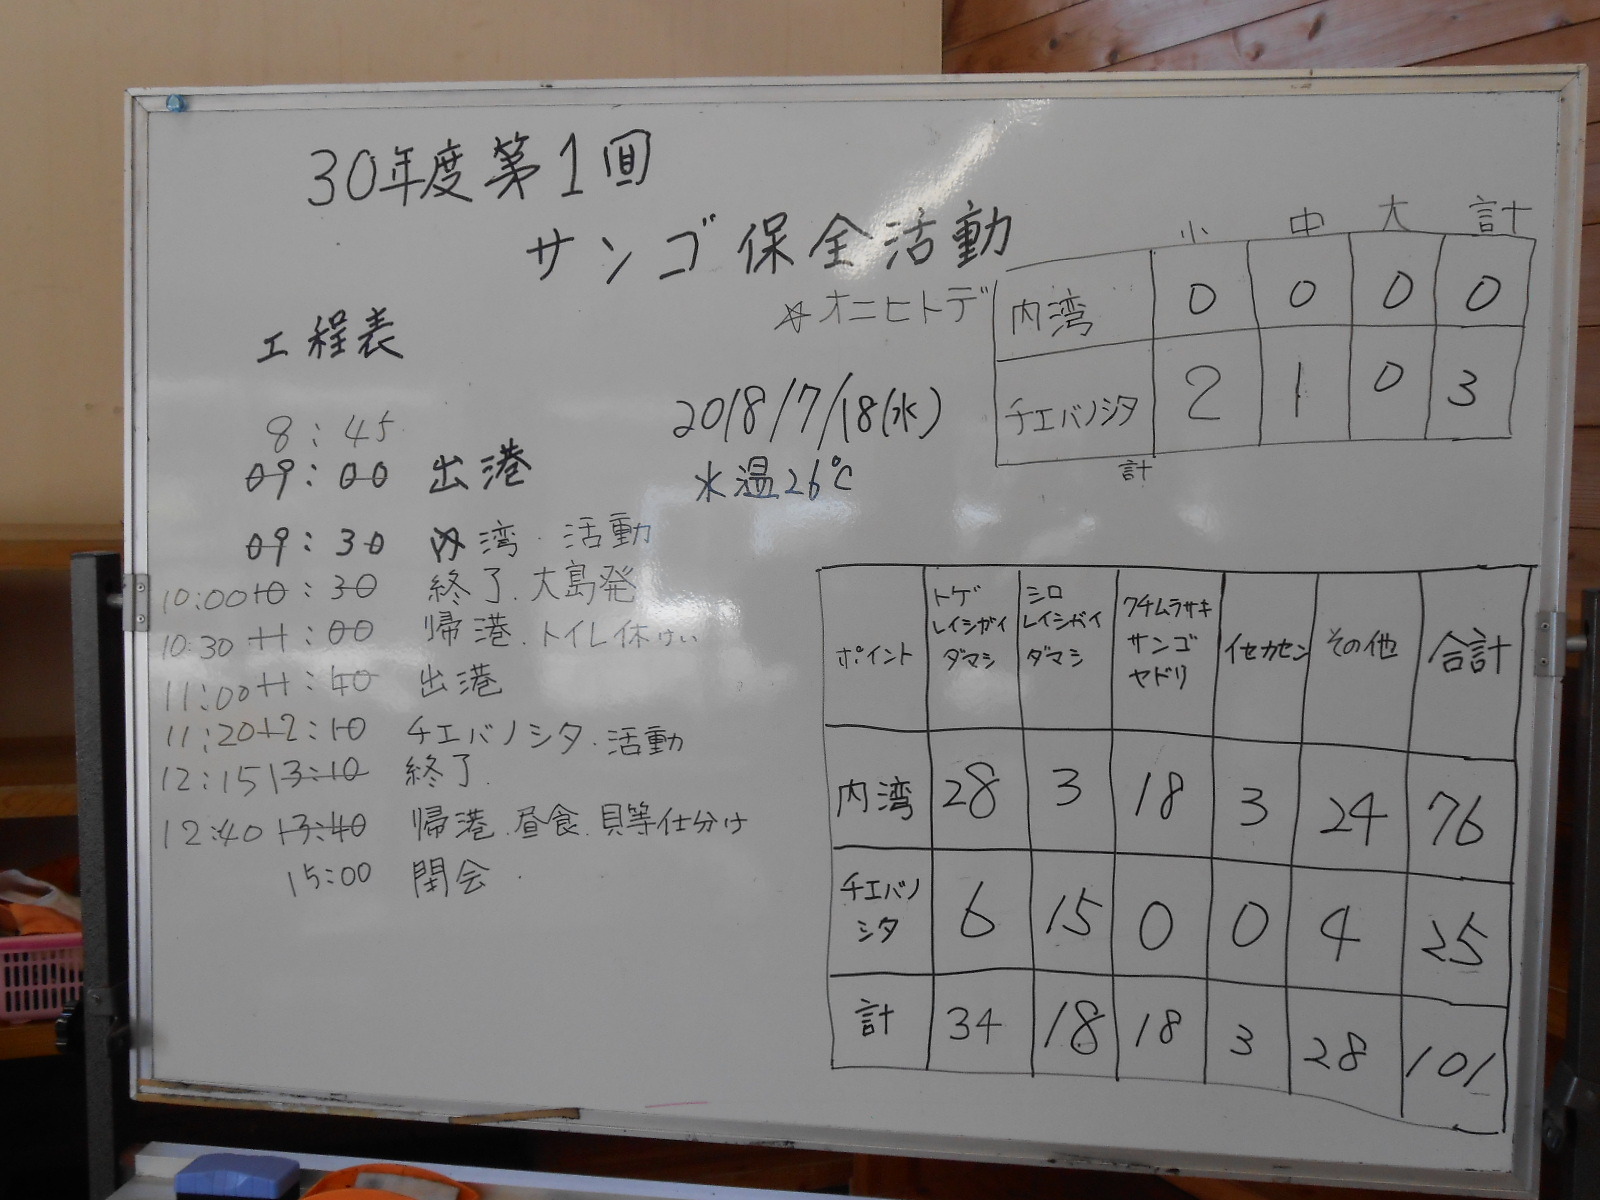 30年度第1回
サンゴ保全活動
小 中 大 計
☆オニヒトデ 内湾 0 0 0 0
チエバノシタ 2 1 0 3
計
工程表
2018/7/18(水)
水温26℃
8:45
09:00 出港
09:30 内湾.活動
10:00 10:30 終了.大島発
10:30 11:00 帰港.トイレ休けい
11:00 11:40 出港
11:20 12:10 チエバノシタ.活動
12:15 13:10 終了.
12:40 13:40 帰港.昼食.貝等仕分け
15:00 閉会.
ポイント トゲレイシガイダマシ シロレイシガイダマシ クチムラサキサンゴヤドリ イセカセン その他 合計
内湾 28 3 18 3 24 76
チエバノシタ 6 15 0 0 4 25
計 34 18 18 3 28 101